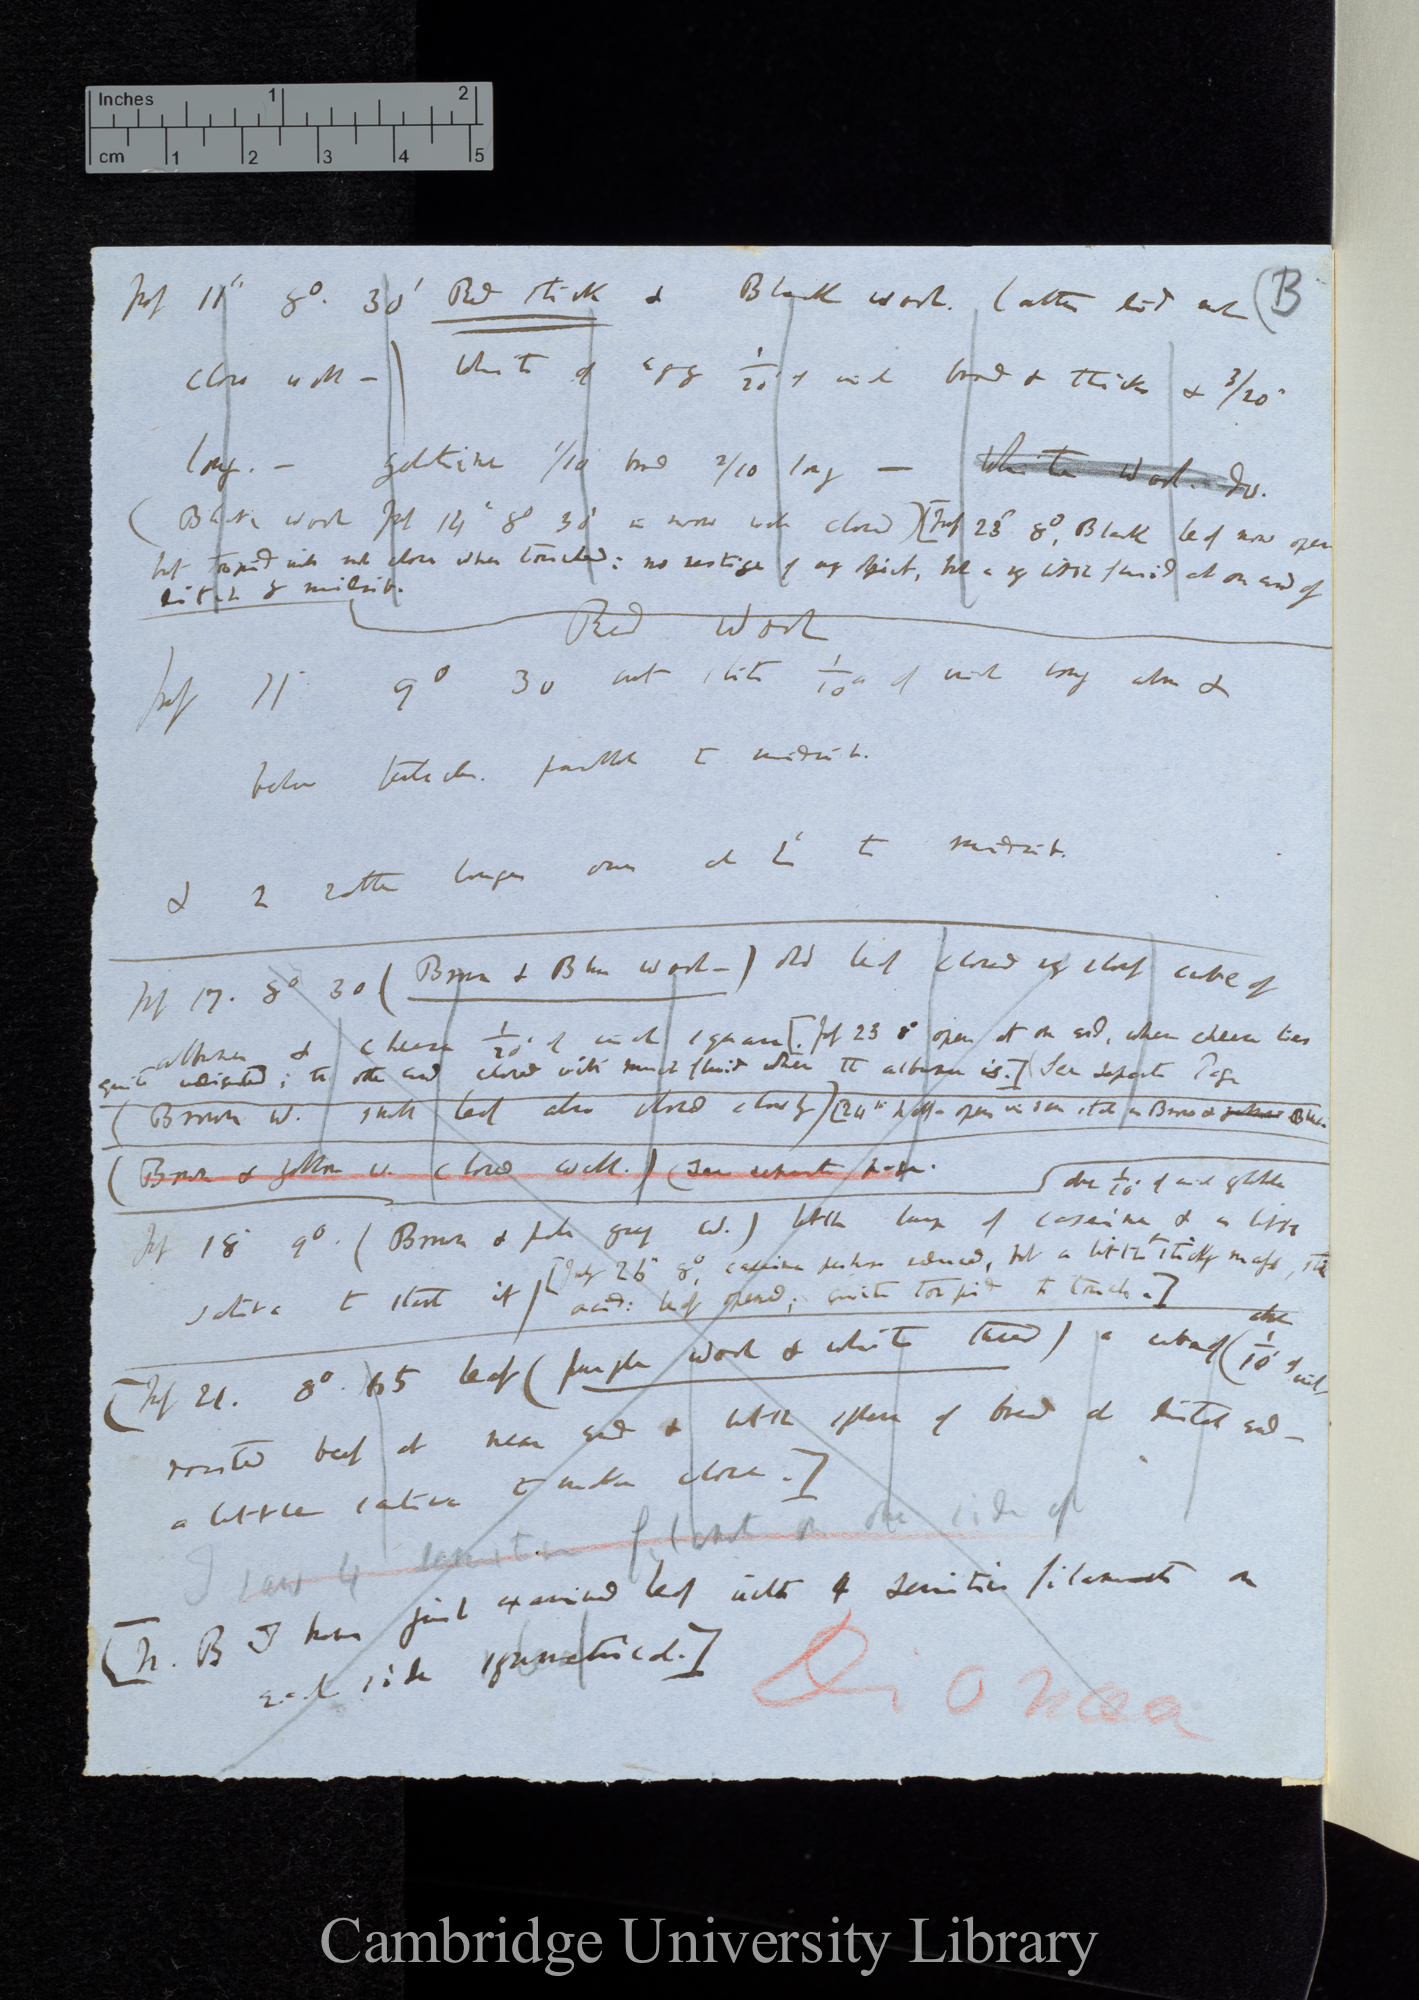 Inches 1 2
cm 1 2 3 4 5
(B
July 11" 8°. 30' Red stick & Black wool. Latter did not
close well —) White of egg 1/20" of inch broad & thick & 3/20"
long. — gelatine 1/10 broad 2/10 long — White wool. Do.
(Black wool July 14" 8° 30' is now well closed) [July 23" 8°, Black leaf now open
but torpid will not close when touched: no vestige of any object, but a little fluid at one end of
midrib.
Red Wool
July 11 9° 30 cut slits 1/10" of inch long above &
below parallel to midrib.
& 2 rather longer ones at to midrib.
July 17. 8° 30 (Brown & Blue wool —) old leaf closed cube of
albumen & cheese 1/20" of inch square [. July 23 8° open at one end, where cheese lies
quite ; the other end closed with much fluid where the albumen is.] See separate Page
(Brown w. leaf also closed closely) [24" open in same state as Brown & Blue.
(Brown & yellow w. closed well.) (See separate page.
July 18 9°. (Brown & pale grey w.) little lump of caseine & a little
1/10" of inch
saliva to start it) [July 26" 8°, caseine perhaps reduced, but a little sticky mass, still
acid: leaf opened; quite torpid to touch.]
[July 21. 8°. 45 leaf (purple wool & white thread) a cube of (1/10" of inch
roasted beef at near end & little sphere of bread at distal end —
a little saliva to make close.]
I saw 4 sensitive filament on one side of
[N. B I have just examined leaf with 4 sensitive filaments on
each side symmetrical.]
Dionaea
Cambridge University Library